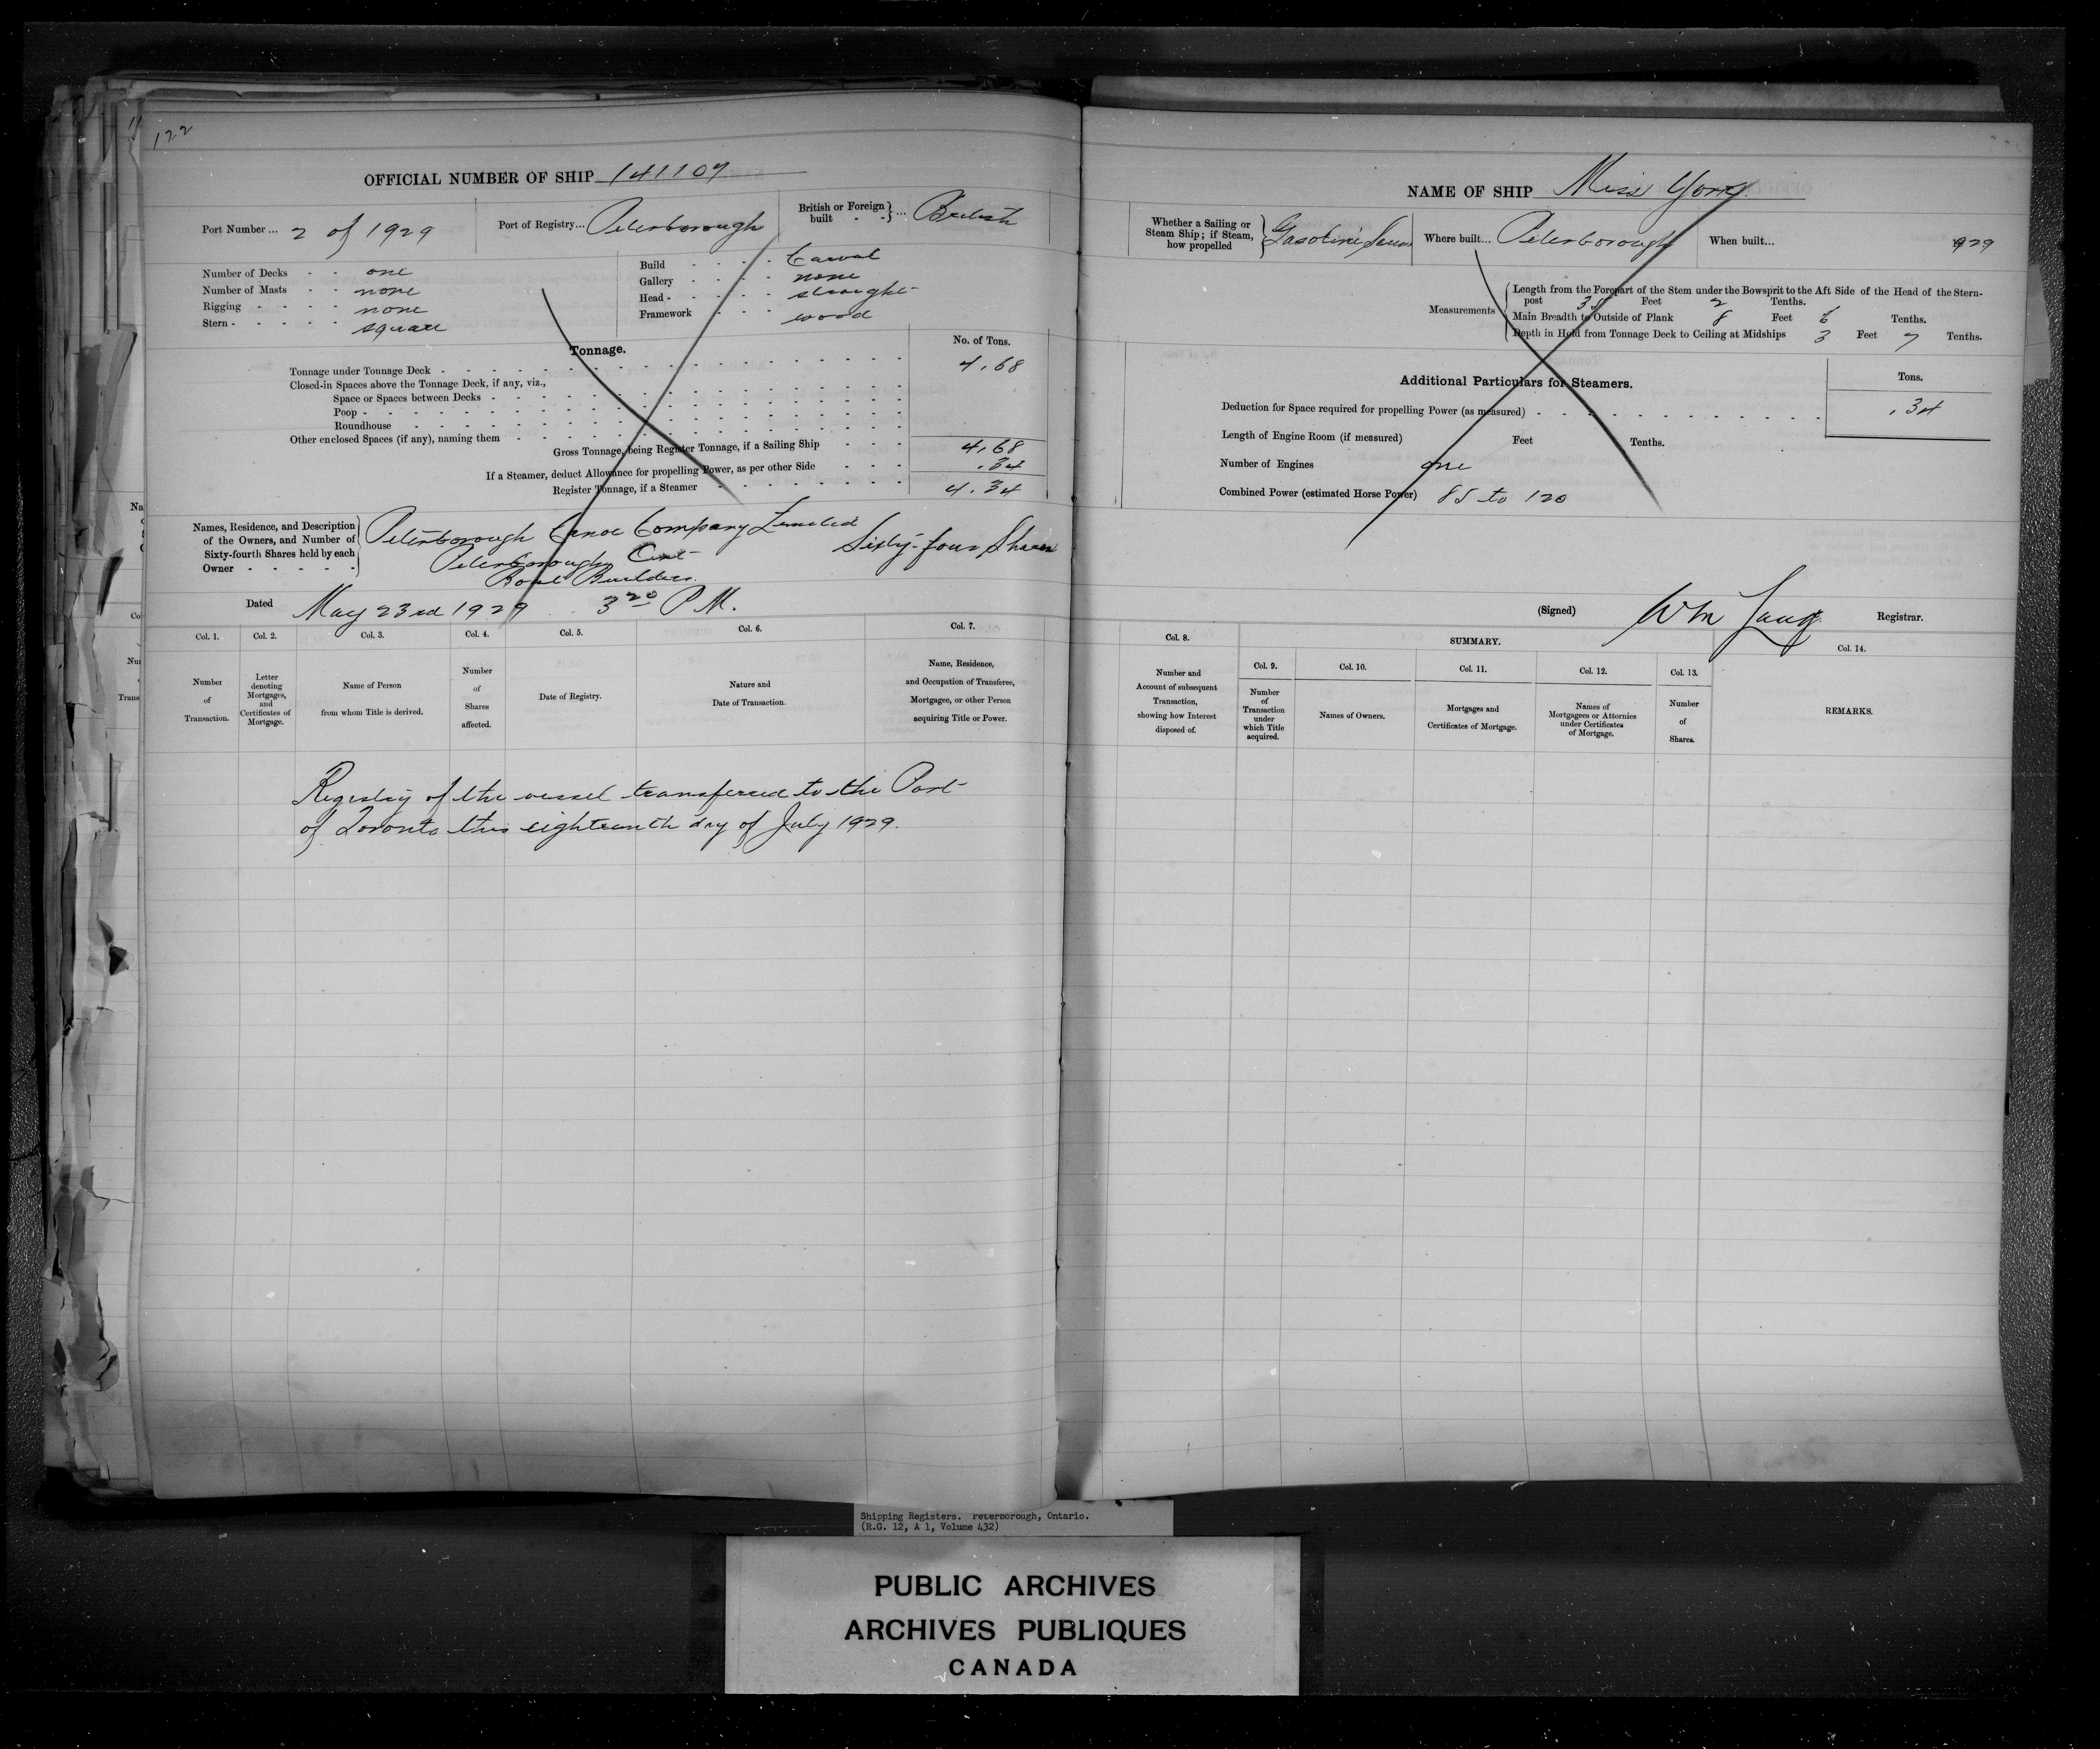 122
OFFICIAL NUMBER OF SHIP 141107
Port Number... 2 of 1929
Port of Registry... Peterborough
British or Foreign built - - } ... British
Number of Decks - - one
Number of Masts - - none
Rigging - - - - none
Stern - - - - - square
Build - - - - Carvel
Gallery - - - - none
Head - - - - - straight
Framework - - - wood
Tonnage.
No. of Tons.
Tonnage under Tonnage Deck - - - 4.68
Closed-in Spaces above the Tonnage Deck, if any, viz.,
Space or Spaces between Decks - - -
Poop - - -
Roundhouse - - -
Other enclosed Spaces (if any), naming them - - -
Gross Tonnage, being Register Tonnage, if a Sailing Ship - - - 4.68
If a Steamer, deduct Allowance for propelling Power, as per other Side - - - .34
Register Tonnage, if a Steamer - - - 4.34
Names, Residence, and Description of the Owners, and Number of Sixty-fourth Shares held by each Owner - - - - -
Peterborough Canoe Company Limited
Peterborough Ont
Sixty-four Shares
Boat Builders.
Dated May 23rd 1929 3 20 P.M.
Col. 1.
Number of Transaction.
Col. 2.
Letter denoting Mortgages, and Certificates of Mortgage.
Col. 3.
Name of Person from whom Title is derived.
Col. 4.
Number of Shares affected.
Col. 5.
Date of Registry.
Col. 6.
Nature and Date of Transaction.
Col. 7.
Name, Residence, and Occupation of Transferee, Mortgagee, or other Person acquiring Title or Power.
Registry of the vessel transferred to the Port
of Toronto this eighteenth day of July 1929.
NAME OF SHIP Miss York
Whether a Sailing or Steam Ship; if Steam, how propelled } Gasoline Screw
Where built... Peterborough
When built... 1929
Measurements
Length from the Forepart of the Stem under the Bowsprit to the Aft Side of the Head of the Stern-
post 38 Feet 2 Tenths.
Main Breadth to Outside of Plank 8 Feet 6 Tenths.
Depth in Hold from Tonnage Deck to Ceiling at Midships 3 Feet 7 Tenths.
Additional Particulars for Steamers.
Tons.
Deduction for Space required for propelling Power (as measured) - - - .34
Length of Engine Room (if measured) Feet Tenths.
Number of Engines one
Combined Power (estimated Horse Power) 85 to 120
(Signed) Wm Lang Registrar.
Col. 8.
Number and Account of subsequent Transaction, showing how Interest disposed of.
SUMMARY.
Col. 9.
Number of Transaction under which Title acquired.
Col. 10.
Names of Owners.
Col. 11.
Mortgages and Certificates of Mortgage.
Col. 12.
Names of Mortgagees or Attornies under Certificates of Mortgage.
Col. 13.
Number of Shares.
Col. 14.
REMARKS.
Shipping Registers. Peterborough, Ontario.
(R.G. 12, A 1, Volume 432)
PUBLIC ARCHIVES
ARCHIVES PUBLIQUES
CANADA